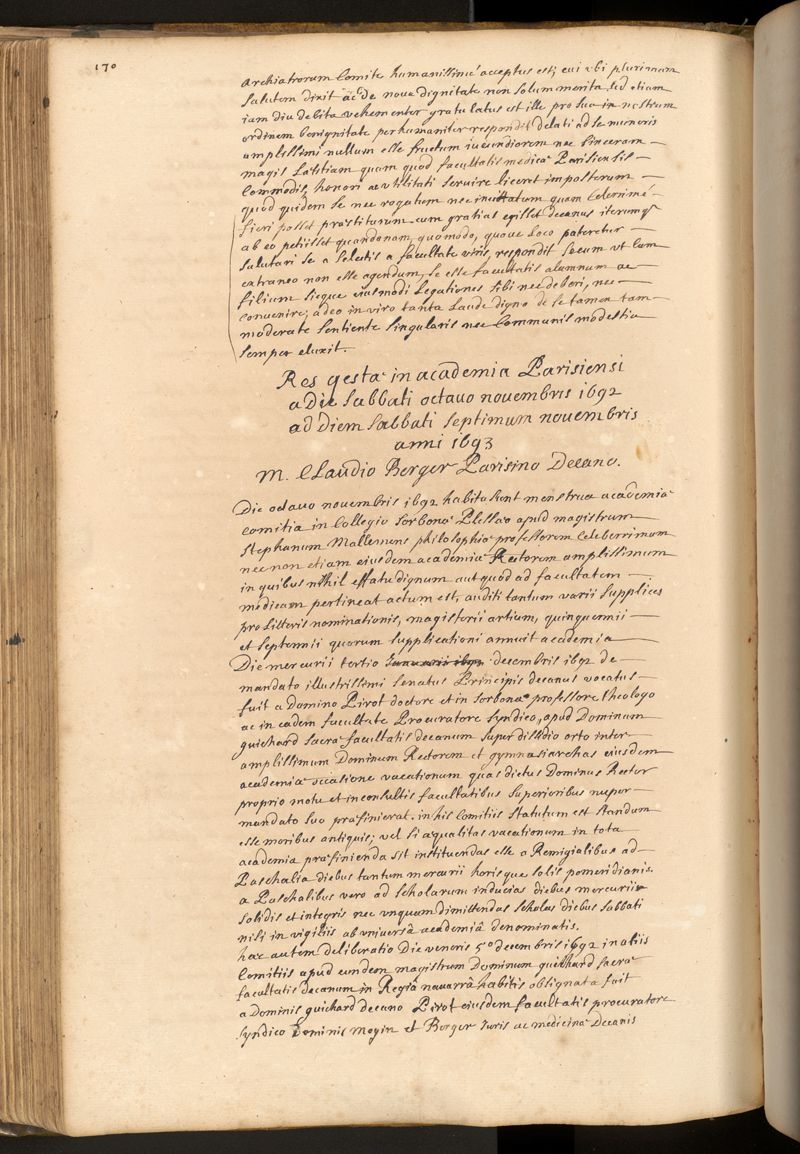 170
archiatrorum Comite humanissimè acceptus est; cui vbi plurimam
salutem dixit ac de noua dignitate non solum merita, sed etiam
iam diu debita vehementer gratulatus est ille pro suo in nostrum
ordinem benignitate perhumaniter respondit delati ad se muneris
amplissimi nullum esse fructum iucundiorem nec sinceram
magis Lætitiam quam quod facultatis medicæ Parisiensis
commodis, honori ac vtilitati seruire liceret impostorum
quod quidem se nec rogatum nec inuitatum quam Celerrimè
fieri posset præstiturum cum gratias egisset decanus iterumq3
ab eo petiisset quandonam, quomodo, quoue Loco pateretur
salutari se a selectis a facultate viris, respondit secum vt cum
extraneo non esse agendum, se esse facultatis alumnum ac
filium sieque eiusmodi Legationes sibi nec deberi, nec
conuenire; adeo in viro tanta Laude digno de se tamen tam
moderate sentiente singularis nec Communis modestia
semper eluxit.
Res gestæ in academia Parisiensi
a Die sabbati octauo nouembris 1692
ad Diem sabbati septimum nouembris
anni 1693
M. CLaudio Berger Parisino Decano.
Die octauo nouembris 1692 habita sunt menstrua academiæ
comitia in Collegio sorbonæ Plessæo apud magistrum
stephanum Mallemans philosophiæ professorem Celeberrimum
nec non etiam eiusdem academiæ Rectorem amplissimum
in quibus nihil effatu dignum aut quod ad facultatem
medicam pertineat actum est, auditi tantum varii supplices
pro Litteris nominationis, magisterii artium, quinquennii
et septennii quorum supplicationi annuit academia
Die mercurii tertio Januarii 1692 decembris 1692 de
mandato illustrissimi senatus Principis decanus vocatus
fuit a Domino Pirot doctore et in sorbona professore theologo
ac in eadem facultate Procuratore syndico, apud Dominum
guichard sacræ facultatis decanum super dissidio orto inter
amplissimum Dominum Rectorem et gymnasiarchas eiusdem
academiæ occasione vacationum quas dictus Dominus Rector
proprio motu et inconsultis facultatibus superioribus nuper
mandato suo præfinierat. in his Comitiis statutum est standum
esse moribus antiquis; vel si æqualitas vacationum in tota
academia præfinienda sit instituendas esse a Remigialibus ad
Paschalia diebus tantum mercurii horisque solis pomeridianis.
a Paschalibus vero ad scholarum inducias diebus mercurii
solidis et integris nec vnquam dimittendas scholas diebus sabbati
nisi in vigiliis ab vniuersâ academiâ denominatis.
hæc autem deliberatio Die veneris 5º decembris 1692 in aliis
Comitiis apud eundem magistrum Dominum guichard sacræ
facultatis decanum in Regiâ nauarrâ habitis obsignata fuit
a Dominis guichard decano Pirot eiusdem facultatis procuratore
syndico Dominis Moyin et Berger Iuris ac medicinæ Decanis